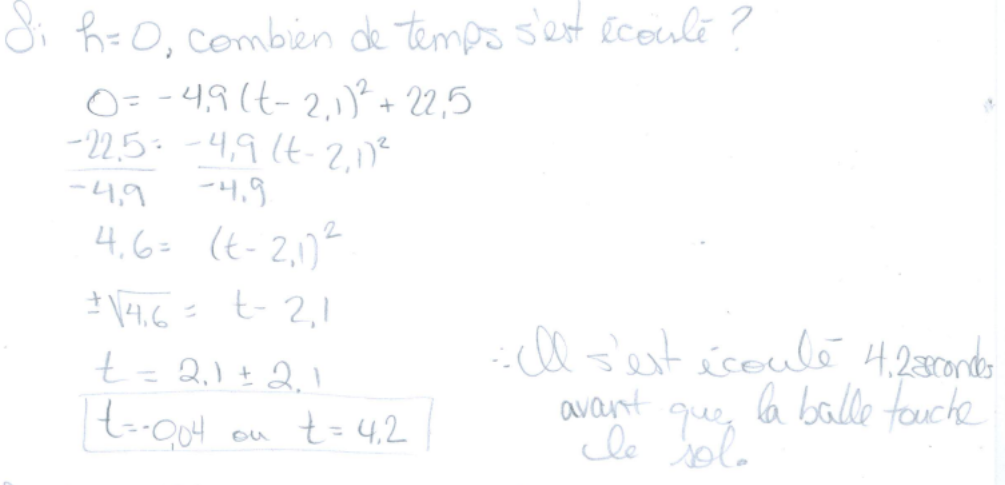 Si h=0, combien de temps s'est écoulé ?
0 = -4,9(t-2,1)² + 22,5
-22,5 = -4,9(t-2,1)²
-4,9 -4,9
4,6 = (t-2,1)²
±√4,6 = t-2,1
t = 2,1 ± 2,1
t=-0,04 ou t=4,2
∴ Il s'est écoulé 4,2 secondes
avant que la balle touche
le sol.